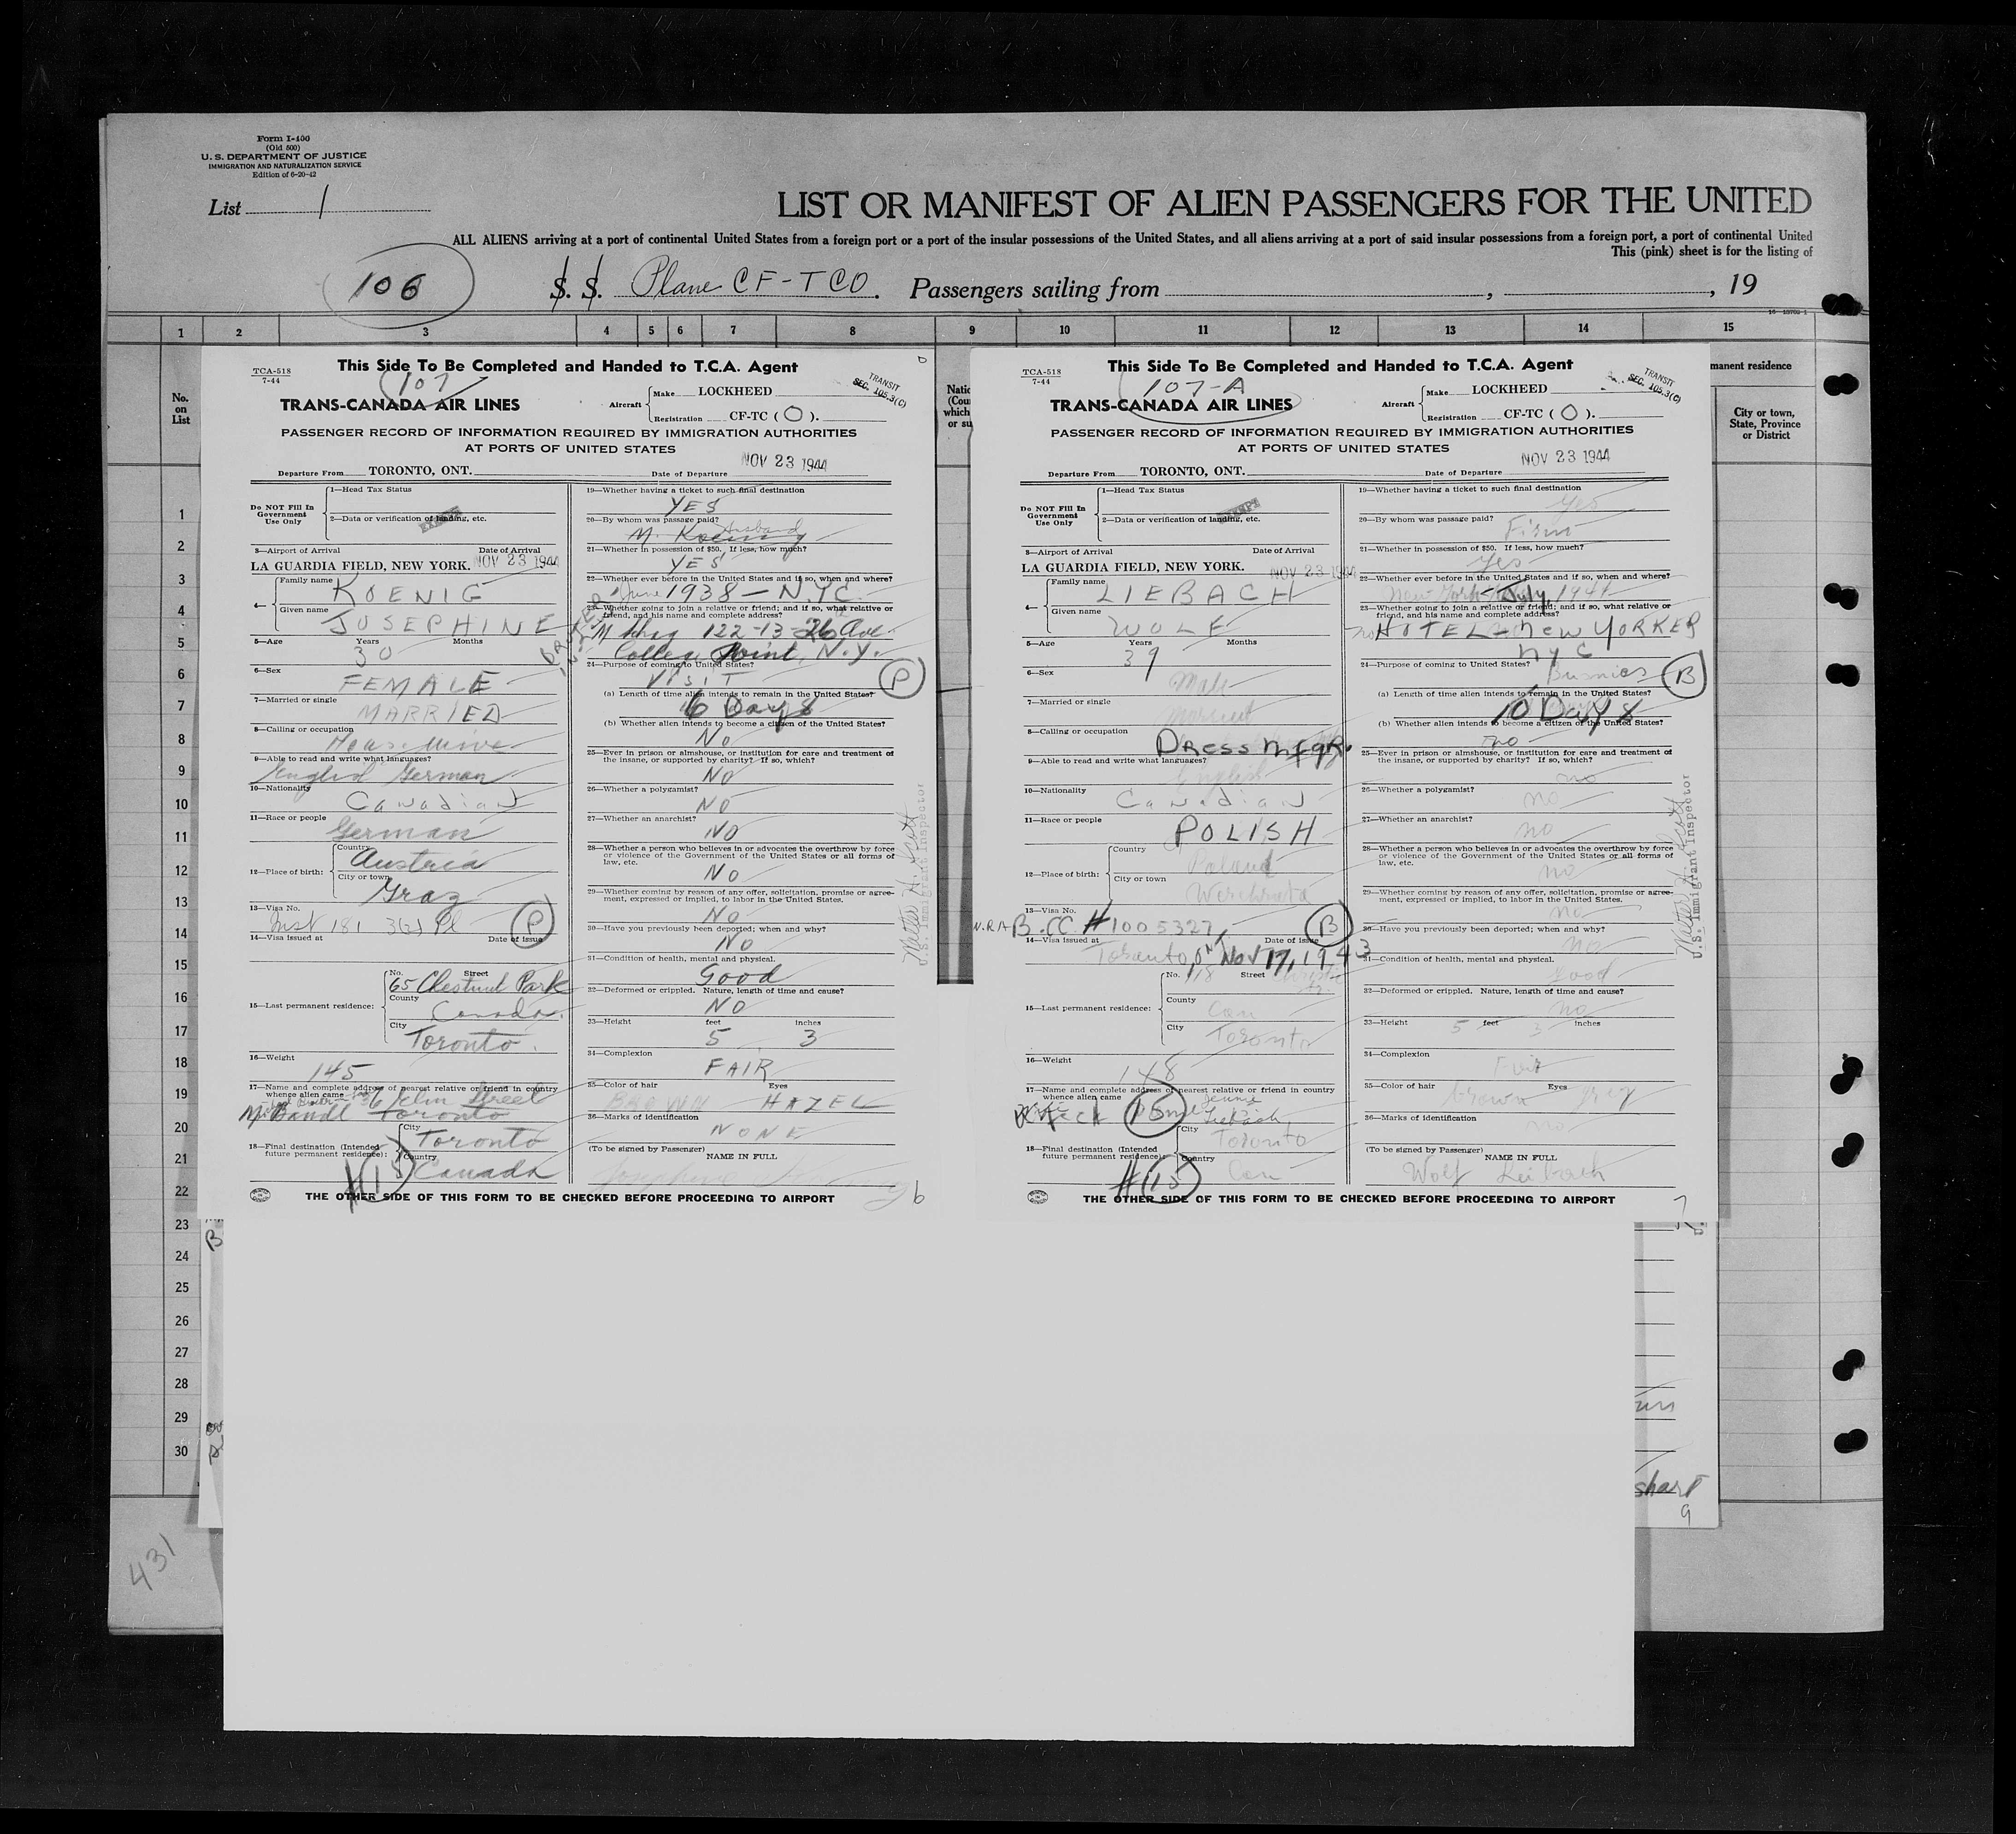 Form I-400
(Old 500)
U. S. DEPARTMENT OF JUSTICE
IMMIGRATION AND NATURALIZATION SERVICE
Edition of 6-20-42
List 1
LIST OR MANIFEST OF ALIEN PASSENGERS FOR THE UNITED
ALL ALIENS arriving at a port of continental United States from a foreign port or a port of the insular possessions of the United States, and all aliens arriving at a port of said insular possessions from a foreign port, a port of continental United
This (pink) sheet is for the listing of
106
S. S. Plane CF-TCO. Passengers sailing from , , 19
1 2 3 4 5 6 7 8 9 10 11 12 13 14 15
No.
on
List
This Side To Be Completed and Handed to T.C.A. Agent
TCA-518
7-44
107
TRANS-CANADA AIR LINES
Aircraft
Make LOCKHEED
Registration CF-TC ( O ).
TRANSIT
SEC. 105.3(C)
PASSENGER RECORD OF INFORMATION REQUIRED BY IMMIGRATION AUTHORITIES
AT PORTS OF UNITED STATES
Departure From TORONTO, ONT. Date of Departure NOV 23 1944
Do NOT Fill In
Government
Use Only
1—Head Tax Status
2—Data or verification of landing, etc.
EXEMPT
3—Airport of Arrival Date of Arrival
LA GUARDIA FIELD, NEW YORK. NOV 23 1944
4— Family name KOENIG
Given name JOSEPHINE
5—Age Years 30 Months
6—Sex FEMALE
7—Married or single MARRIED
8—Calling or occupation Housewive
9—Able to read and write what languages?
English German
10—Nationality Canadian
11—Race or people German
12—Place of birth: Country Austria
City or town Graz
13—Visa No.
P
14—Visa issued at Date of issue
15—Last permanent residence: No. Street 65 Chestnut Park
County Canada
City Toronto
16—Weight 145
17—Name and complete address of nearest relative or friend in country
whence alien came
Elm Street
Toronto
18—Final destination (Intended
future permanent residence):
City Toronto
Country Canada
19—Whether having a ticket to such final destination
YES
20—By whom was passage paid?
Husband
M. Koenig
21—Whether in possession of $50. If less, how much?
YES
22—Whether ever before in the United States and if so, when and where?
June 1938 — N.Y.C.
23—Whether going to join a relative or friend; and if so, what relative or
friend, and his name and complete address?
122-13-26 Ave.
College Point, N.Y.
24—Purpose of coming to United States?
VISIT
P
(a) Length of time alien intends to remain in the United States?
6 Days
(b) Whether alien intends to become a citizen of the United States?
No
25—Ever in prison or almshouse, or institution for care and treatment of
the insane, or supported by charity? If so, which?
No
26—Whether a polygamist?
NO
27—Whether an anarchist?
NO
28—Whether a person who believes in or advocates the overthrow by force
or violence of the Government of the United States or all forms of
law, etc.
NO
29—Whether coming by reason of any offer, solicitation, promise or agree-
ment, expressed or implied, to labor in the United States.
NO
30—Have you previously been deported; when and why?
No
31—Condition of health, mental and physical.
Good
32—Deformed or crippled. Nature, length of time and cause?
NO
33—Height feet 5 inches 3
34—Complexion FAIR
35—Color of hair BROWN Eyes HAZEL
36—Marks of identification NONE
(To be signed by Passenger) NAME IN FULL
U.S. Immigrant Inspector
THE OTHER SIDE OF THIS FORM TO BE CHECKED BEFORE PROCEEDING TO AIRPORT
6
This Side To Be Completed and Handed to T.C.A. Agent
TCA-518
7-44
107-A
TRANS-CANADA AIR LINES
Aircraft
Make LOCKHEED
Registration CF-TC ( O ).
TRANSIT
SEC. 105.3(C)
PASSENGER RECORD OF INFORMATION REQUIRED BY IMMIGRATION AUTHORITIES
AT PORTS OF UNITED STATES
Departure From TORONTO, ONT. Date of Departure NOV 23 1944
Do NOT Fill In
Government
Use Only
1—Head Tax Status
2—Data or verification of landing, etc.
EXEMPT
3—Airport of Arrival Date of Arrival
LA GUARDIA FIELD, NEW YORK. NOV 23 1944
4— Family name LIEBACH
Given name WOLF
5—Age Years 39 Months
6—Sex Male
7—Married or single Married
8—Calling or occupation DRESS MFGR.
9—Able to read and write what languages?
English
10—Nationality Canadian
11—Race or people POLISH
12—Place of birth: Country Poland
City or town
13—Visa No. B.CC. #1005327
B
14—Visa issued at Toronto, ONT Date of issue Nov 17, 1943
15—Last permanent residence: No. 118 Street
County Can
City Toronto
16—Weight 148
17—Name and complete address of nearest relative or friend in country
whence alien came
18—Final destination (Intended
future permanent residence):
City Toronto
Country Can
#15
19—Whether having a ticket to such final destination
Yes
20—By whom was passage paid?
Firm
21—Whether in possession of $50. If less, how much?
Yes
22—Whether ever before in the United States and if so, when and where?
New York July, 1944
23—Whether going to join a relative or friend; and if so, what relative or
friend, and his name and complete address?
no HOTEL - New YORKER
NYC
24—Purpose of coming to United States?
Busnies
B
(a) Length of time alien intends to remain in the United States?
10 Days
(b) Whether alien intends to become a citizen of the United States?
no
25—Ever in prison or almshouse, or institution for care and treatment of
the insane, or supported by charity? If so, which?
no
26—Whether a polygamist?
no
27—Whether an anarchist?
no
28—Whether a person who believes in or advocates the overthrow by force
or violence of the Government of the United States or all forms of
law, etc.
no
29—Whether coming by reason of any offer, solicitation, promise or agree-
ment, expressed or implied, to labor in the United States.
no
30—Have you previously been deported; when and why?
no
31—Condition of health, mental and physical.
good
32—Deformed or crippled. Nature, length of time and cause?
no
33—Height 5 feet 3 inches
34—Complexion Fair
35—Color of hair brown Eyes grey
36—Marks of identification no
(To be signed by Passenger) NAME IN FULL
Wolf Leibach
U.S. Immigrant Inspector
THE OTHER SIDE OF THIS FORM TO BE CHECKED BEFORE PROCEEDING TO AIRPORT
7
manent residence
City or town,
State, Province
or District
1
2
3
4
5
6
7
8
9
10
11
12
13
14
15
16
17
18
19
20
21
22
23
24
25
26
27
28
29
30
B
9
431